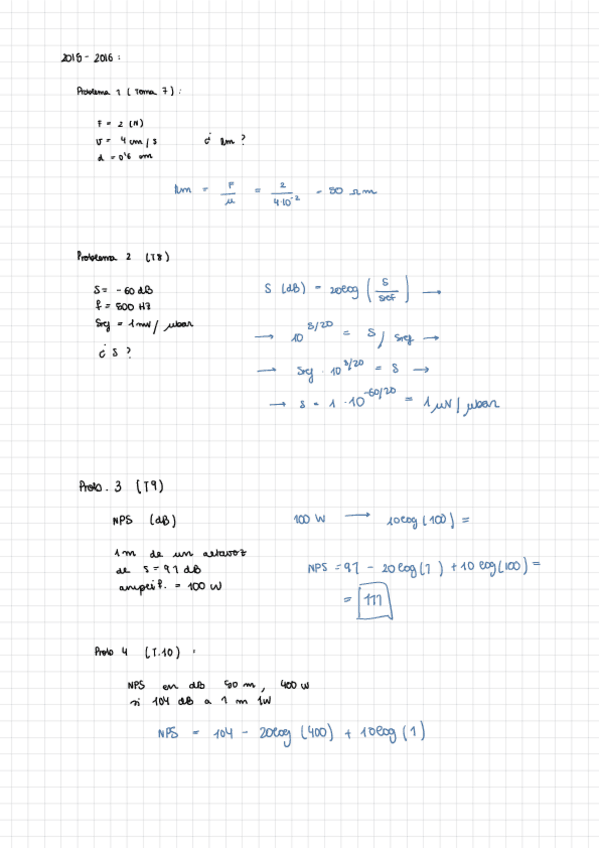 2015 - 2016 :
Problema 1 ( Tema 7 ) :
F = 2 (N)
v = 4 cm / s
d = 0'6 cm
¿ Rm ?
Rm = F / μ = 2 / 4·10^-2 = 50 Ωm
Problema 2 (T8)
S = -60 dB
f = 500 Hz
Sref = 1mV / μbar
¿ S ?
S (dB) = 20log ( S / Sref ) →
→ 10^S/20 = S / Sref →
→ Sref · 10^S/20 = S →
→ S = 1 · 10^-60/20 = 1 μV / μbar
Prob. 3 (T9)
NPS (dB)
1m de un altavoz
de S = 91 dB
amplif. = 100 W
100 W → 10log (100) =
NPS = 91 - 20log (1) + 10 log (100) =
= 111
Prob 4 (T.10) :
NPS en dB 50 m, 400 W
si 104 dB a 1 m 1W
NPS = 104 - 20log (400) + 10log (1)